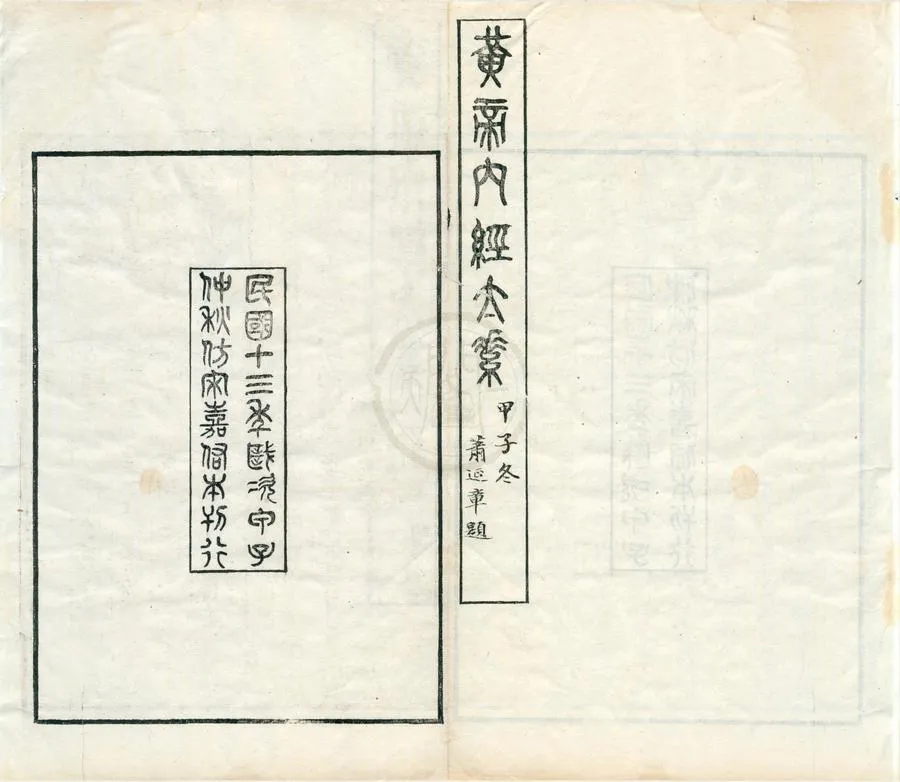 黃帝內經太素
甲子冬
蕭延章題
民國十三年歲次甲子
仲秋仿宋嘉佑本刊行